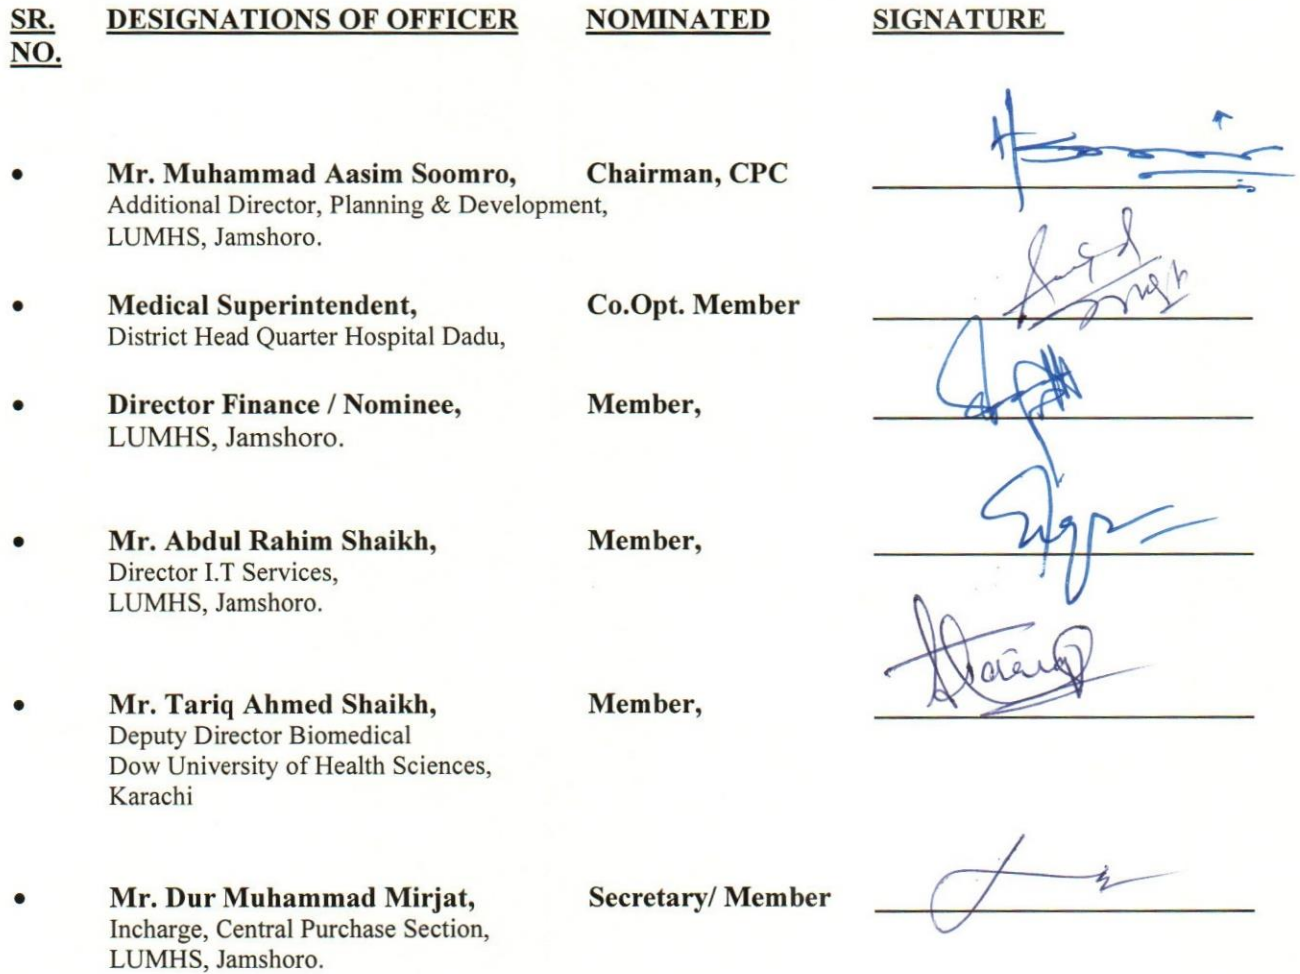 SR. DESIGNATIONS OF OFFICER NOMINATED SIGNATURE
NO.
• Mr. Muhammad Aasim Soomro, Chairman, CPC
Additional Director, Planning & Development,
LUMHS, Jamshoro.
• Medical Superintendent, Co.Opt. Member
District Head Quarter Hospital Dadu,
• Director Finance / Nominee, Member,
LUMHS, Jamshoro.
• Mr. Abdul Rahim Shaikh, Member,
Director I.T Services,
LUMHS, Jamshoro.
• Mr. Tariq Ahmed Shaikh, Member,
Deputy Director Biomedical
Dow University of Health Sciences,
Karachi
• Mr. Dur Muhammad Mirjat, Secretary/ Member
Incharge, Central Purchase Section,
LUMHS, Jamshoro.